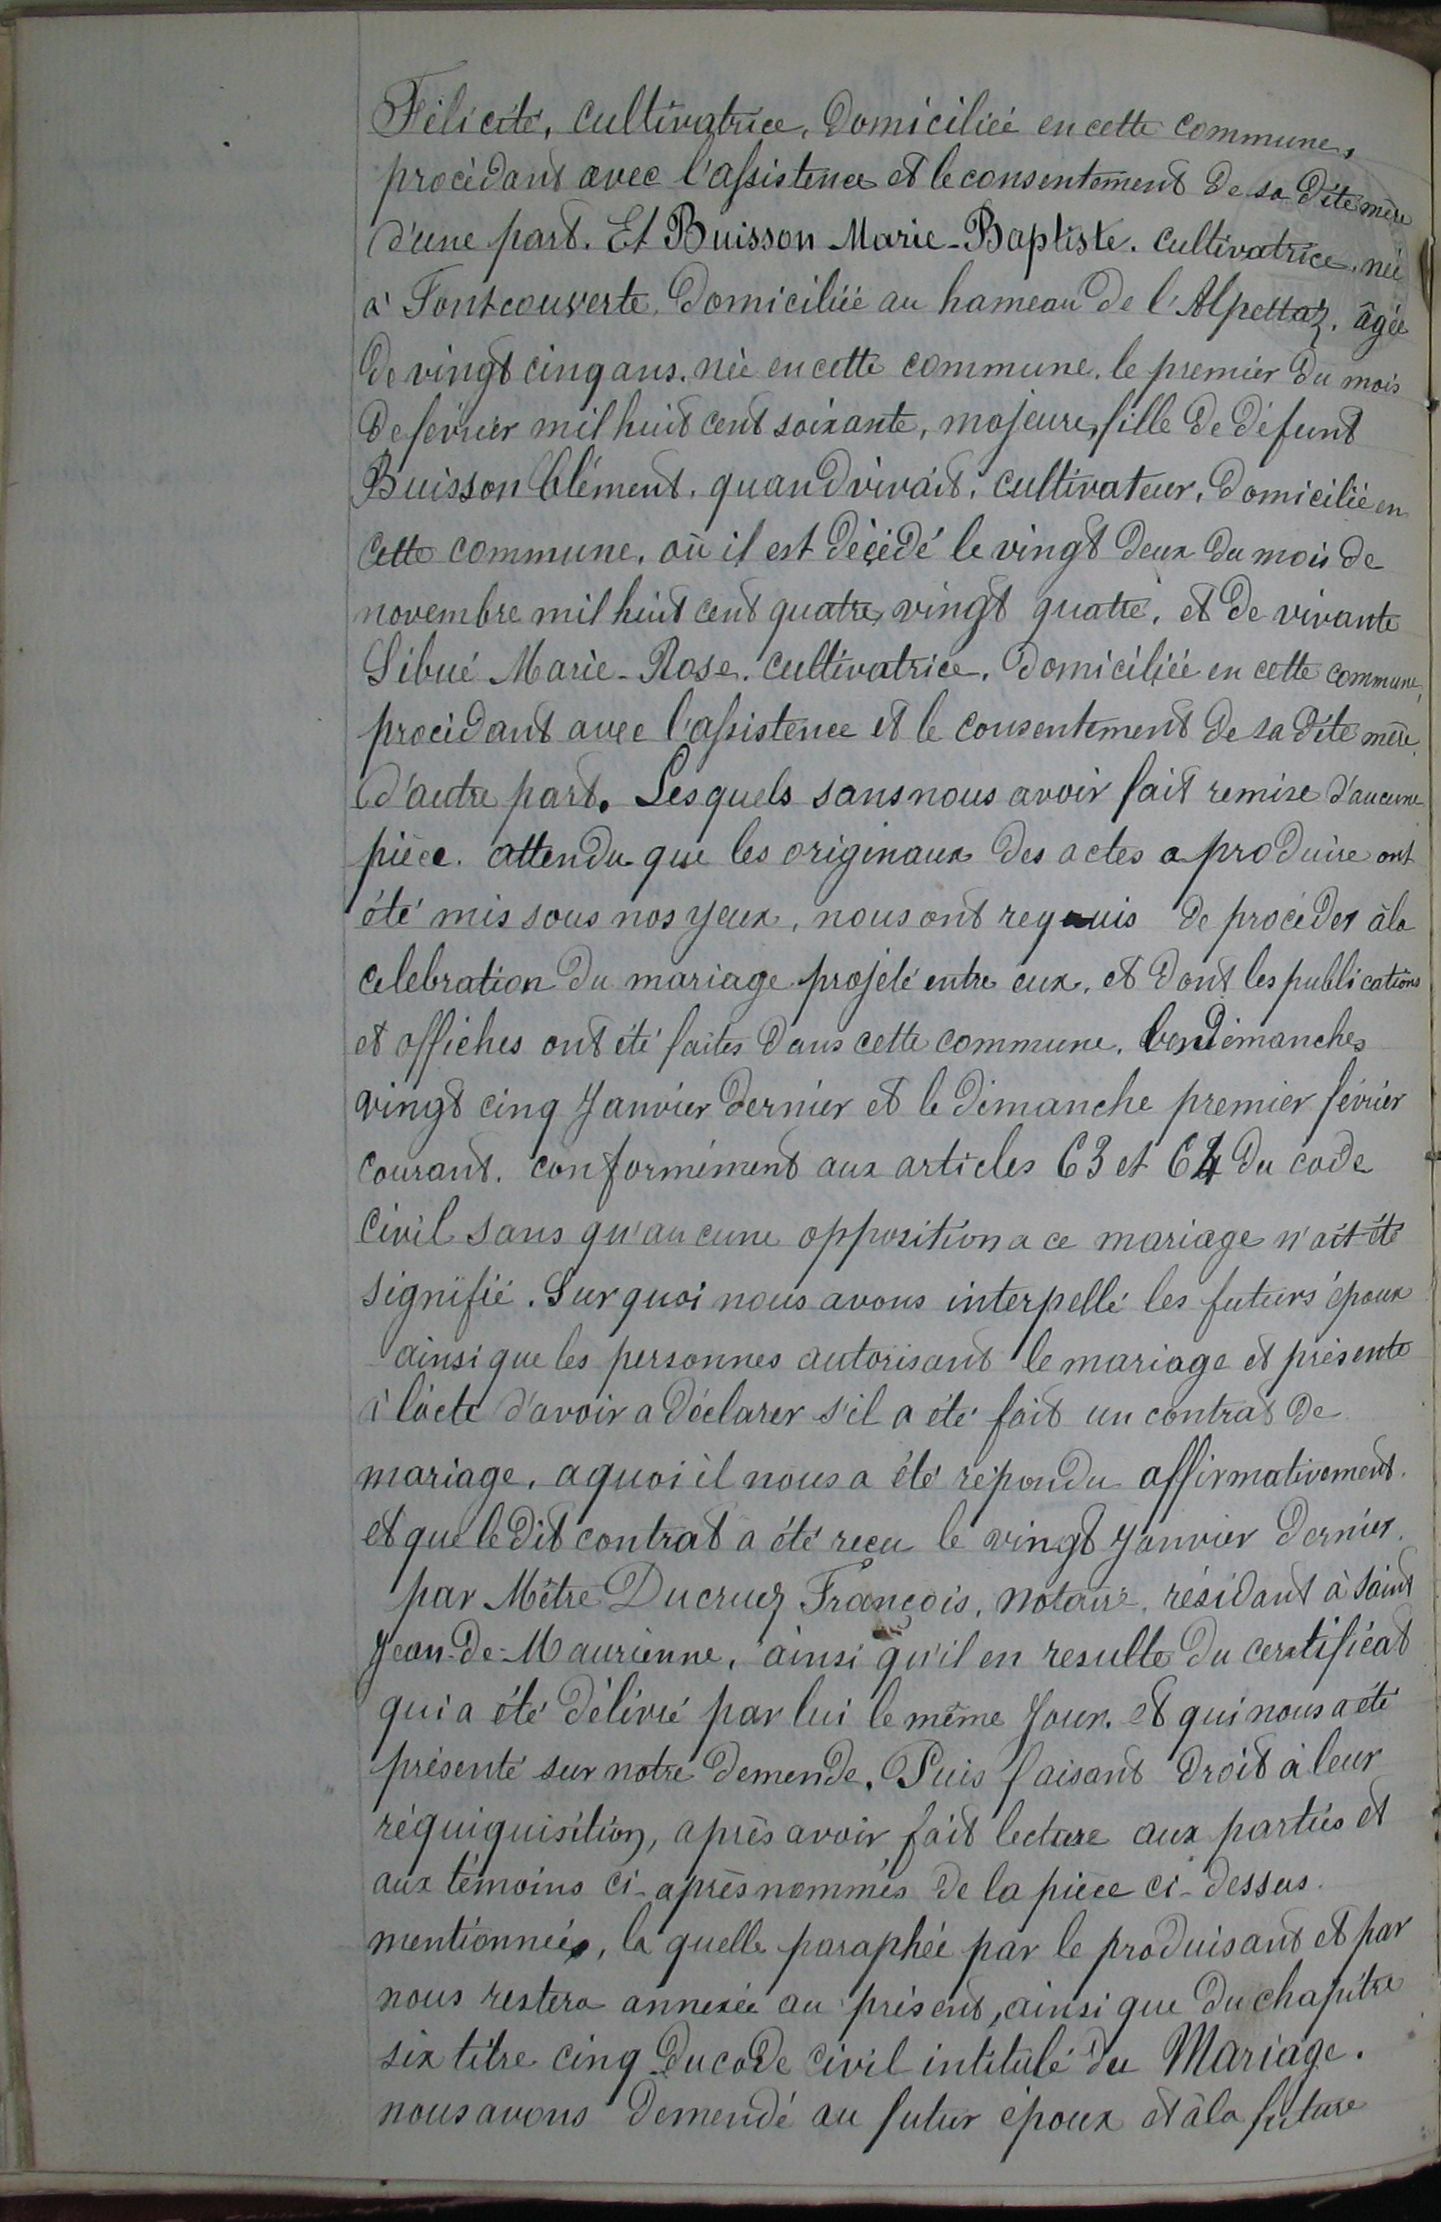 Félicité, cultivatrice, domiciliée en cette commune,
procédant avec l'assistence et le consentement de sa dite mère
d'une part. Et Buisson Marie-Baptiste. cultivatrice, née
à Fontcouverte, domiciliée au hameau de l'Alpettaz, âgée
de vingt cinq ans, née en cette commune, le premier du mois
de février mil huit cent soixante, majeure, fille de défunt
Buisson Clément, quand vivait, cultivateur, domicilié en
cette commune, où il est décédé le vingt deux du mois de
novembre mil huit cent quatre vingt quatre, et de vivante
Sibué Marie-Rose, cultivatrice, domiciliée en cette commune,
procédant avec l'assistence et le consentement de sa dite mère
d'autre part. Lesquels sans nous avoir fait remise d'aucune
pièce. attendu que les originaux des actes a produire ont
été mis sous nos yeux, nous ont requis de procéder à la
celebration du mariage projeté entre eux, et dont les publications
et affiches ont été faites dans cette commune, dimanches
vingt cinq Janvier dernier et le dimanche premier février
courant, conformément aux articles 63 et 64 du code
civil sans qu'aucune opposition a ce mariage n'ait été
signifié. Sur quoi nous avons interpellé les futurs époux
ainsi que les personnes autorisant le mariage et présente
à l'acte d'avoir a déclarer s'il a été fait un contrat de
mariage, a quoi il nous a été répondu affirmativement.
et que le dit contrat a été reçu le vingt Janvier dernier.
par Mètre Ducruez François, notaire, résidant à Saint
Jean-de-Maurienne, ainsi qu'il en resulte du certificat
qui a été délivré par lui le même Jour. et qui nous a été
présenté sur notre demende. Puis faisant droit à leur
réquiquisition, après avoir fait lecture aux parties et
aux témoins ci-après nommés de la pièce ci-dessus.
mentionnée, la quelle paraphée par le produisant et par
nous restera annexée au présent, ainsi que du chapitre
six titre cinq du code civil intitulé du Mariage.
nous avons demendé au futur époux et à la future